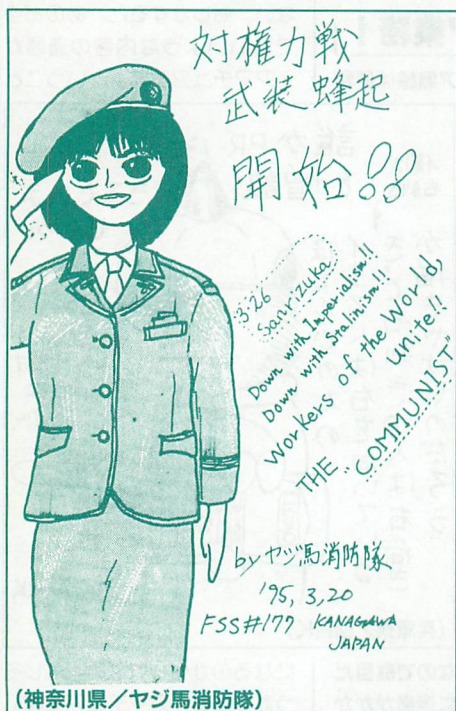 対権力戦
武装蜂起
開始!!
3・26
Sanrizuka
Down with Imperialism!!
Down with Stalinism!!
Workers of the World,
unite!!
THE "COMMUNIST"
by ヤジ馬消防隊
'95,3,20
FSS#177 KANAGAWA
JAPAN
(神奈川県/ヤジ馬消防隊)